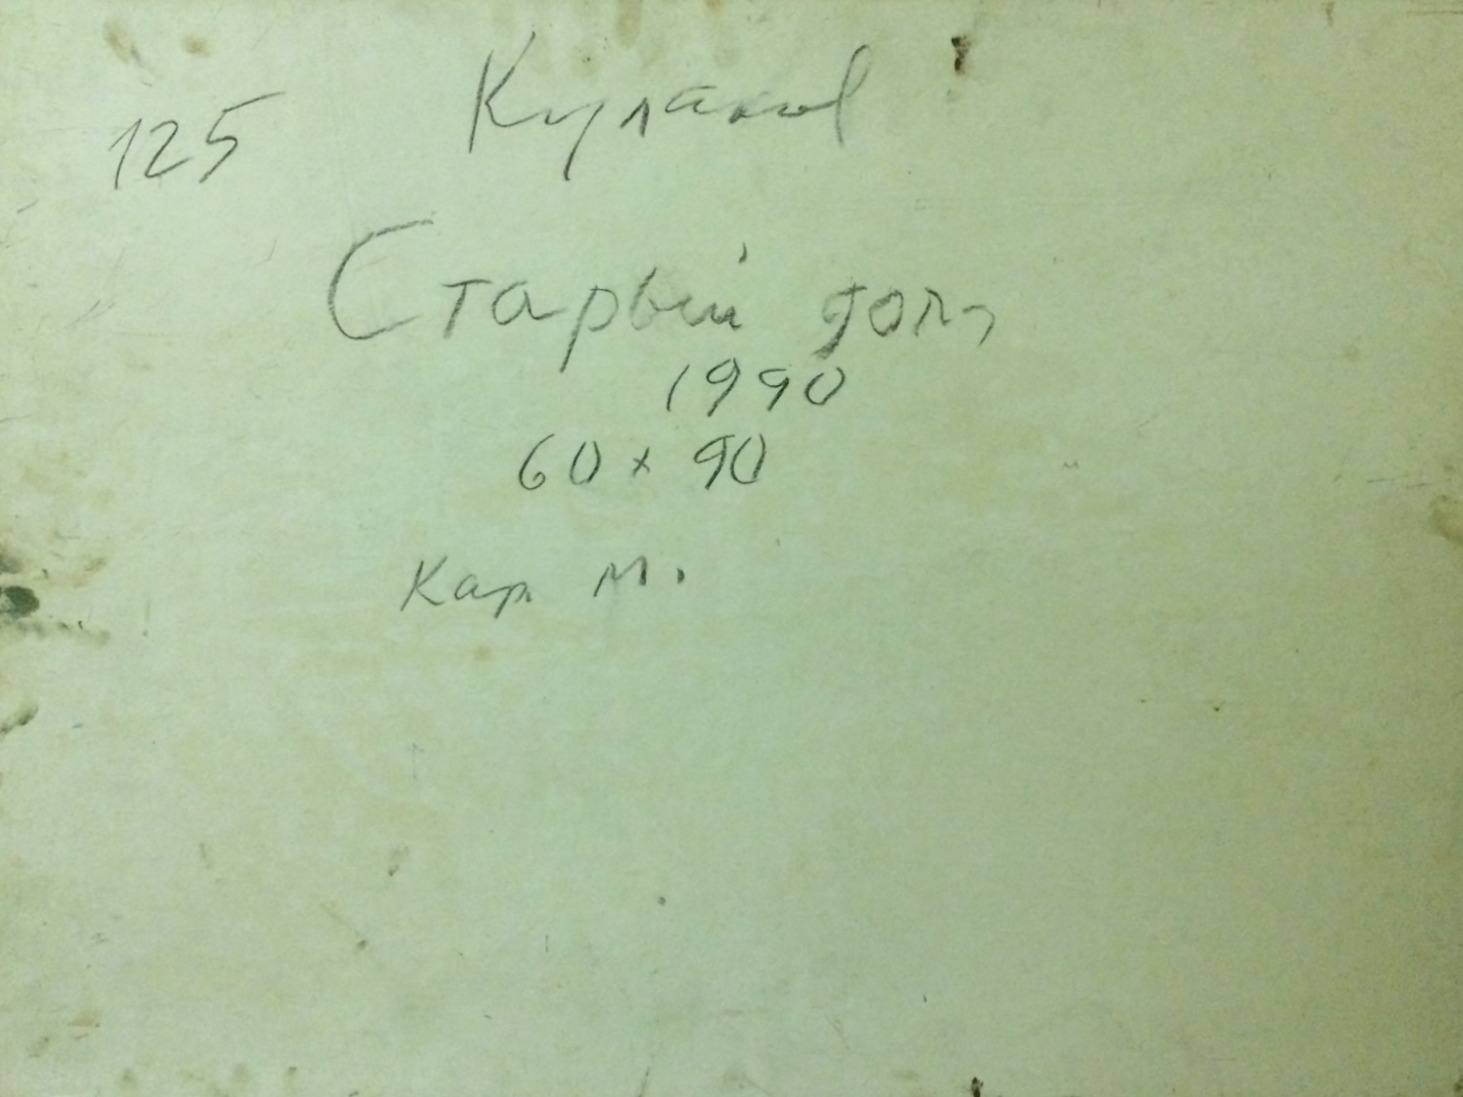 125 Кулаков
Старый дом,
1990
60 x 90
Кар м.